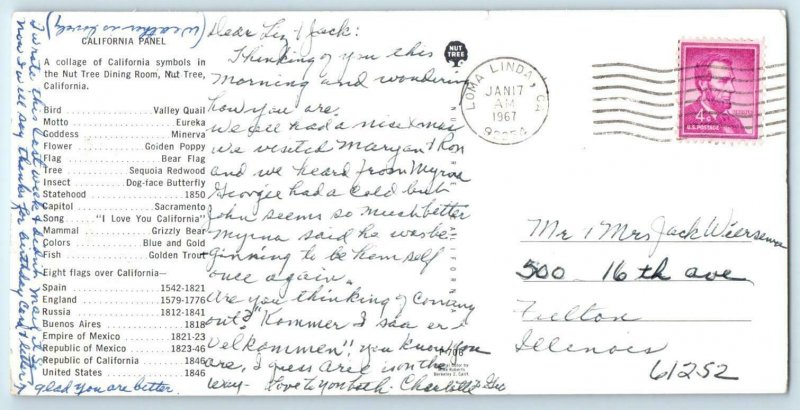 (weather is lovely)
CALIFORNIA PANEL
A collage of California symbols in
the Nut Tree Dining Room, Nut Tree,
California.
Bird Valley Quail
Motto Eureka
Goddess Minerva
Flower Golden Poppy
Flag Bear Flag
Tree Sequoia Redwood
Insect Dog-face Butterfly
Statehood 1850
Capitol Sacramento
Song "I Love You California"
Mammal Grizzly Bear
Colors Blue and Gold
Fish Golden Trout
Eight flags over California—
Spain 1542-1821
England 1579-1776
Russia 1812-1841
Buenos Aires 1818
Empire of Mexico 1821-23
Republic of Mexico 1823-46
Republic of California 1846
United States 1846
I wrote this last week & didn't mail it so
now I will say thanks for birthday card & letter
glad you are better.
Dear Liz & Jack:
Thinking of you this
morning and wondering
how you are.
We all had a nice Xmas
we visited Maryan & Ron
and we heard from Myrna
Georgie had a cold but
John seems so much better
Myrna said he was be-
ginning to be himself
once again.
Are you thinking of coming
out? "Kommer I saa er i
Velkommen" you know you
are, I guess Arel is on the
way - Love to you both - Charlotte &
NUT
TREE
CALIFORNIA
LOMA LINDA, CA
JAN 17
AM
1967
92354
4¢
U.S. POSTAGE
Mr & Mrs Jack Wiersema
500 - 16th ave
Fulton
Illinois
61252